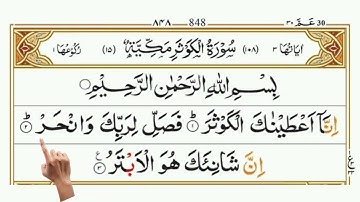 ٨٤٨ 848 عَمَّ ٣٠ 30
اٰيَاتُهَا ٣ (١٠٨) سُوْرَةُ الْكَوْثَرِ مَكِّيَّةٌ (١٥) رُكُوْعُهَا ١
بِسْمِ اللّٰهِ الرَّحْمٰنِ الرَّحِيْمِ
اِنَّاۤ اَعْطَيْنٰكَ الْكَوْثَرَ ؕ‏ ﴿۱﴾ فَصَلِّ لِرَبِّكَ وَانْحَرْ ؕ‏ ﴿۲﴾
اِنَّ شَانِئَكَ هُوَ الْاَبْتَرُ ﴿۳﴾